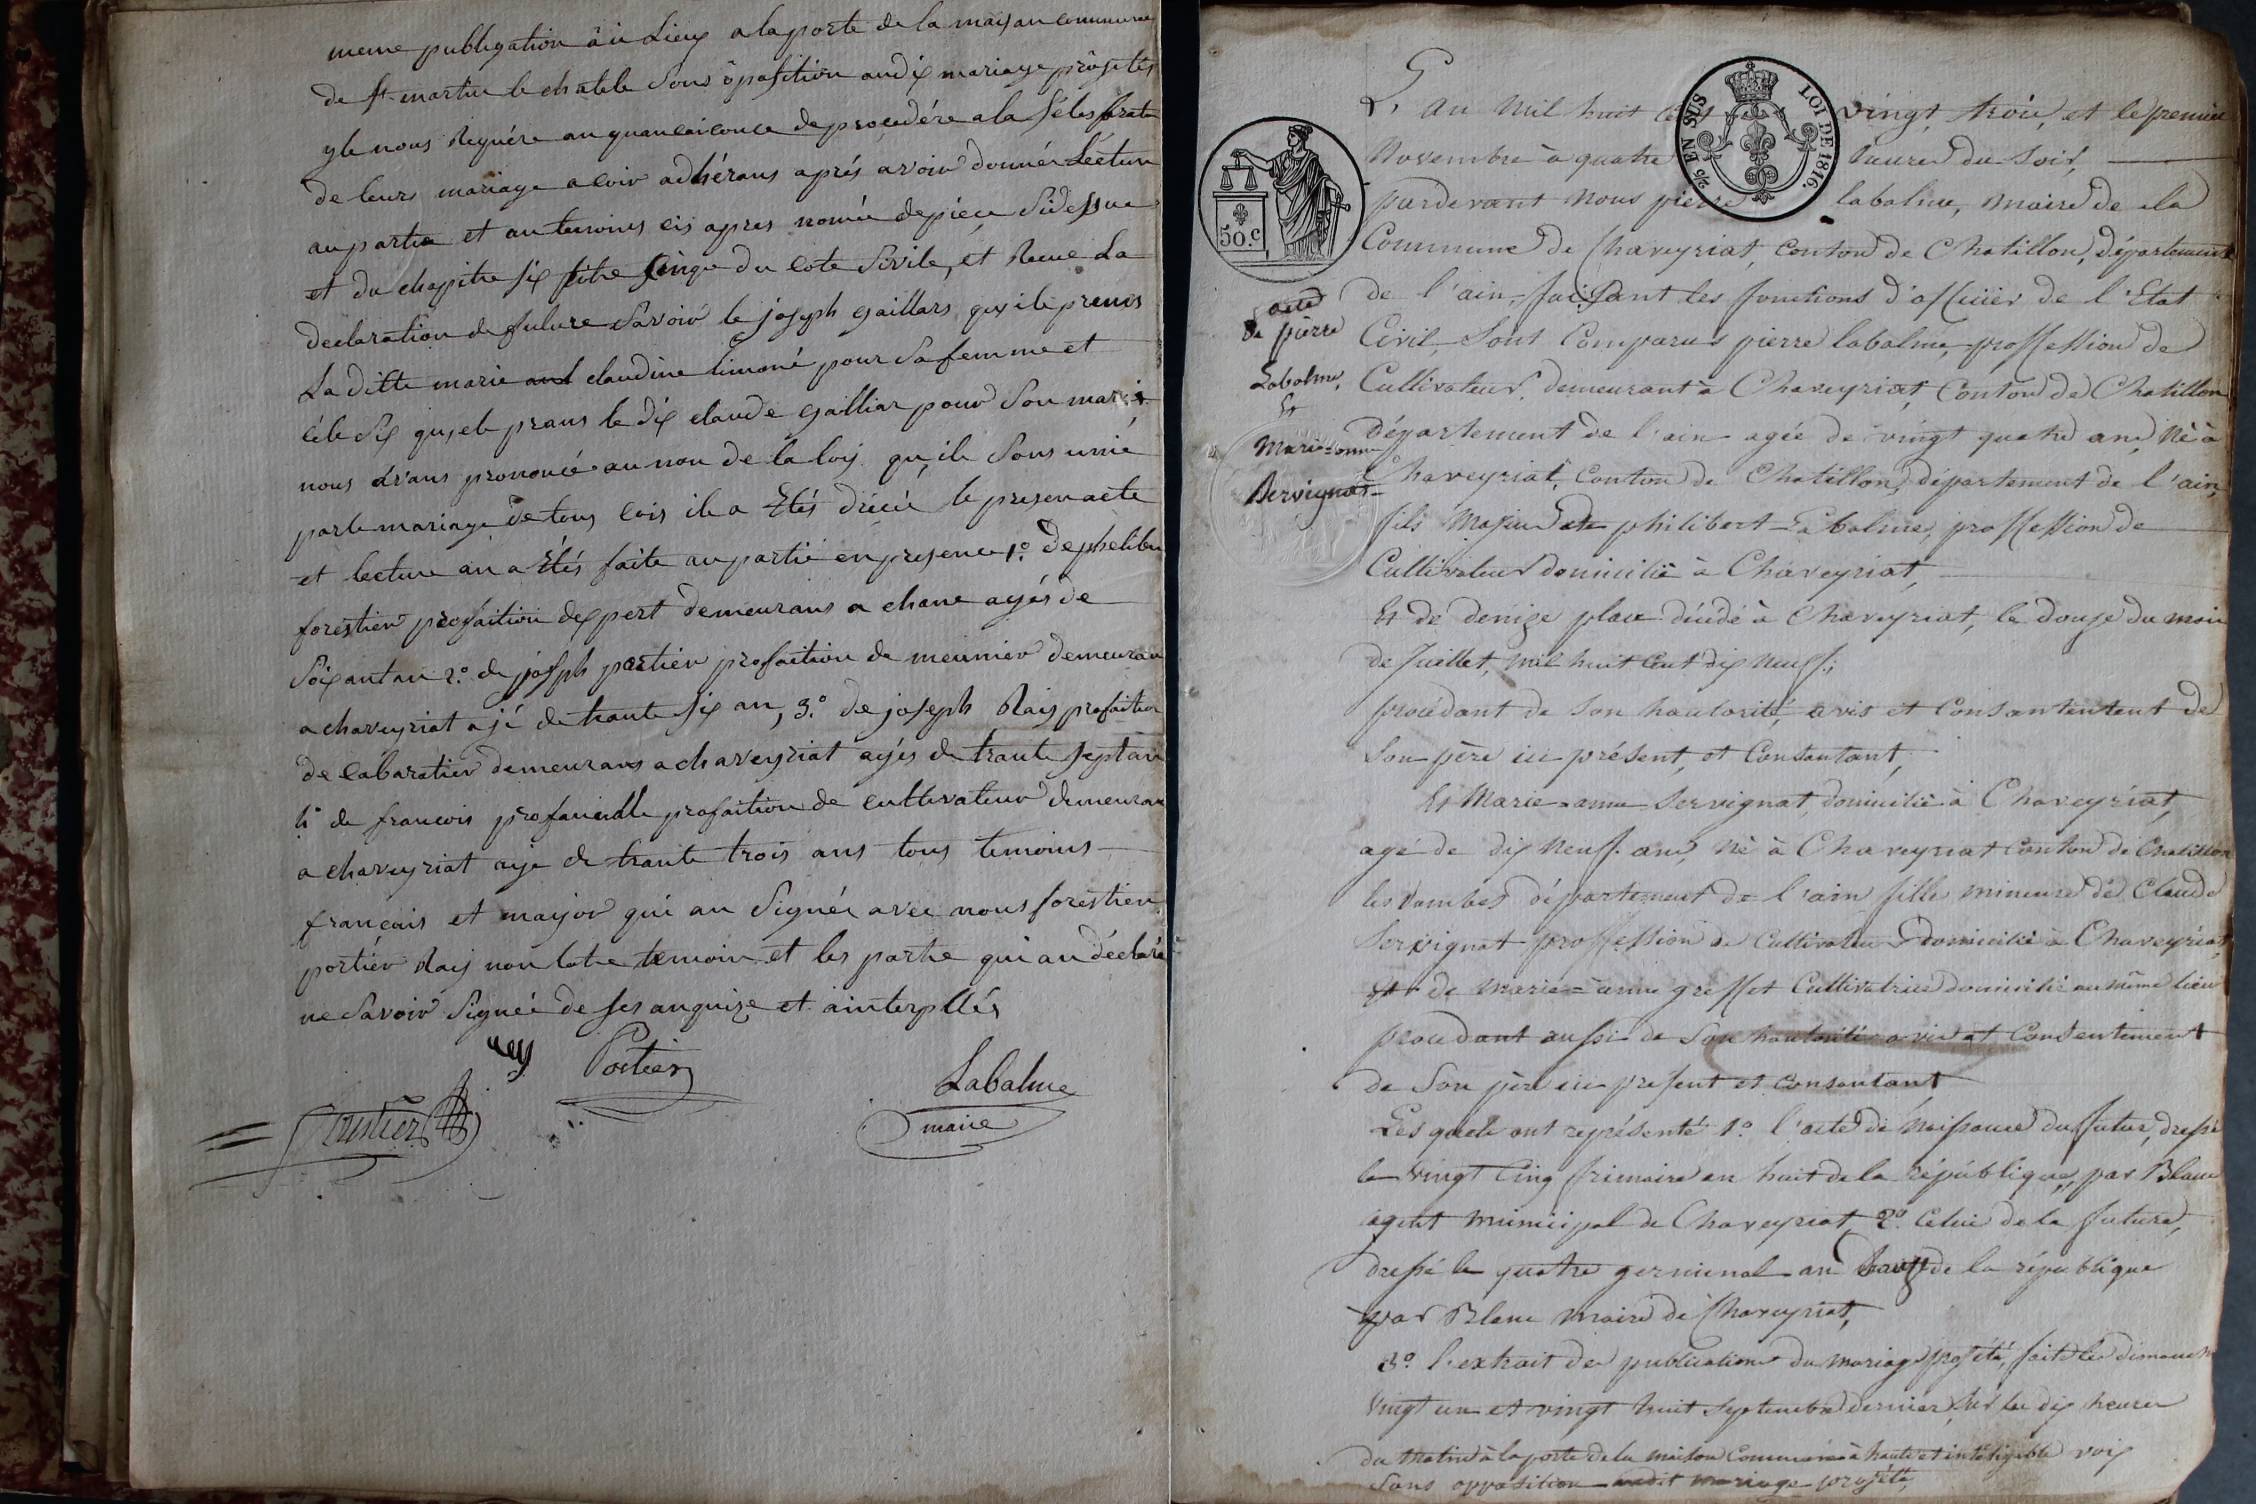 meme publigation âu Lieux a la porte de la maison commune
de st martin le chatele sans ôpasition audix mariage projetés
de procedére a la
de leurs mariage a coir adhérans aprés avoir donnée Lécture
au partie et au temoins cis apres nomée de piéce Sidessue
et du chapitre six titre Cinqe du cote Sivile, et Recue La
declaration de future Savoir le joseph gaillars quile prenis
La ditte marie claudine limoné pour Sa femme et
pour Son mari
nous avans prononcé au non de la loix qu'ile Sons unie
par le mariage de tous cois ile a Etés driécé le presen acte
et lecture an a Etés faite au partie en presence 1.º de phelibe
forestier profaition dexpert demeurans a chane agés de
Soixant an 2.º de joseph portier profaition de meunier demeuran
a chaveyriat ajé de trante six an, 3.º de joseph Ray profaition
de cabaratier demeurans a chaveyriat agés de trante sept an
4º de francois profaition de cultivateur demeuran
a chaveyriat aje de trante trois ans tous temoins
francais et major qui an Signée avec nous forestier
portiér Ray non lotre temoin et les partie qui an déclaré
ne Savoir Signée de ses anquire et ainterpllés
Rey Portier
Labalme
maire
forestier
L'an mil huit cent vingt trois, et le premier
Novembre à quatre heures du Soir,
pardevant Nous pierre labalme, maire de la
Commune de Chaveyriat, Conton de Chatillon, département
de l'ain, faisant les fonctions d'officier de l'Etat
Civil, Sont Comparus pierre labalme, proffession de
Cultivateur, demeurant à Chaveyriat, Conton de Chatillon
département de l'ain agée de vingt quatre ans, Né à
Chaveyriat, Conton de Chatillon, département de l'ain,
fils Majeur de philibert Labalme, proffession de
Cultivateur domicilié à Chaveyriat,
Et de denize place décédé à Chaveyriat, le douze du mois
de Juillet, mil huit Cent dix neuf;
procédant de Son hautorité, avis et Consantentent de
Son père ici présent, et Consantant,
Et Marie=anne Servignat, domicilié à Chaveyriat,
agé de dix Neuf ans, Né à Chaveyriat Conton de Chatillon
les dombes département de l'ain fille mineure de Claude
Servignat proffession de Cultivateur domicilié à Chaveyriat,
Et de Marie=anne greffet Cultivatrice domicilié au même lieu
procedant aussi de Son hautorité avis et Consentement
de Son père ici présent et Consantant
Les quels ont représenté 1.º l'acte de Naissance du futur, dressé
le vingt Cinq frimaire an huit de la république, par Blanc
agent municipal de Chaveyriat, 2.º Celui de la future,
dressé le quatre germinal an de la république
par Blanc maire de Chaveyriat,
3.º l'extrait des publications du mariage projété, fait les dimanches
vingt un et vingt huit septembre dernier, sur les dix heures
du Matin à la porte de la maison Commune à haute et inteligible voix
Sans opposition audit mariage projété,
acte
De pierre
Labalme,
Et
Marie=anne
Servignat
50.C
2/5 EN SUS
LOI DE 1816.